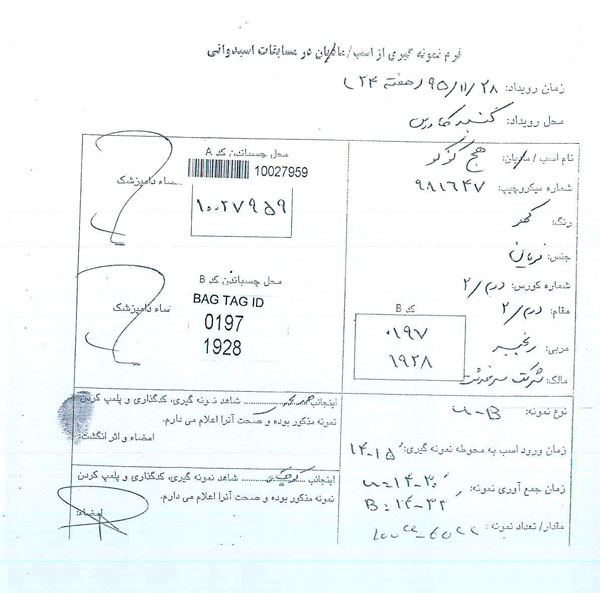 فرم نمونه گیری از اسب/مادیان در مسابقات اسبدوانی
زمان رویداد: ۹۵/۱۱/۲۸ (هفته ۲۴)
محل رویداد: گنبد کاووس
نام اسب / مادیان:
شماره میکروچیپ: ۹۸۱۶۴۷
رنگ: کهر
جنس:
شماره کورس: دوم/۲
مقام: دوم/۲
مربی: رنجبر
مالک: شرکت
کد B
۰۱۹۷
۱۹۲۸
محل چسباندن کد A
10027959
۱۰۰۲۷۹۵۹
امضاء دامپزشک
محل چسباندن کد B
BAG TAG ID
0197
1928
امضاء دامپزشک
نوع نمونه: u-B
زمان ورود اسب به محوطه نمونه گیری: ۱۴-۱۵
زمان جمع آوری نمونه: u=۱۴-۳۰
B=۱۴-۳۲
مقدار/ تعداد نمونه:
اینجانب شاهد نمونه گیری، کدگذاری و پلمپ کردن
نمونه مذکور بوده و صحت آنرا اعلام می دارم.
امضاء و اثر انگشت:
اینجانب شاهد نمونه گیری، کدگذاری و پلمپ کردن
نمونه مذکور بوده و صحت آنرا اعلام می دارم.
امضاء: